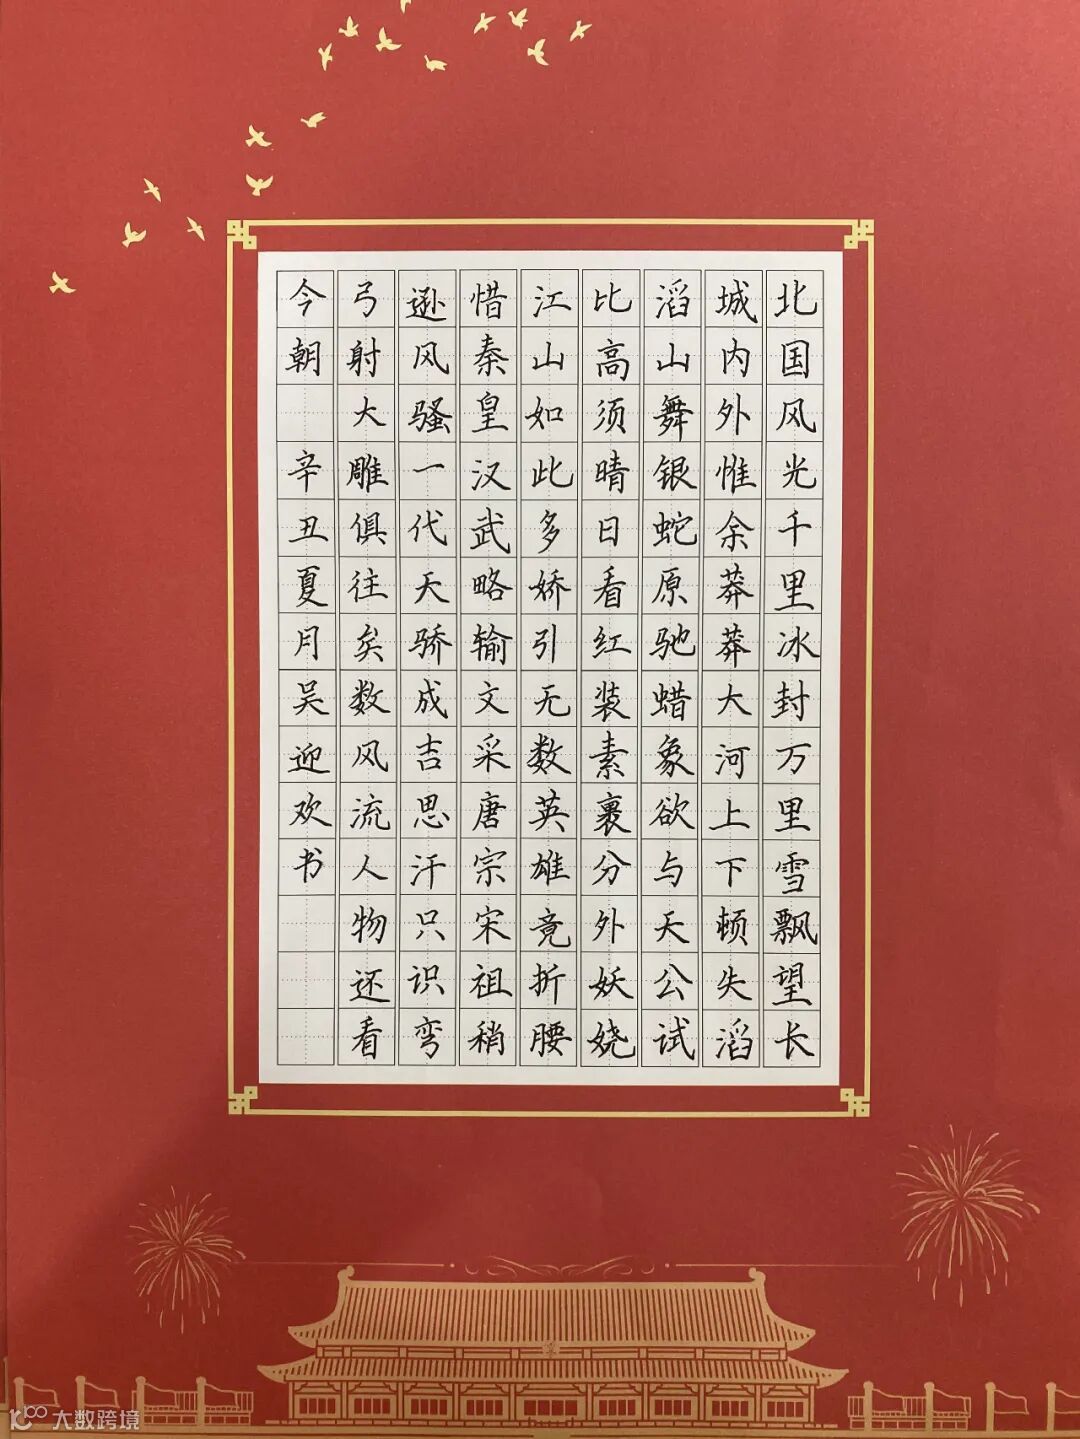 北国风光千里冰封万里雪飘望长
城内外惟余莽莽大河上下顿失滔
滔山舞银蛇原驰蜡象欲与天公试
比高须晴日看红装素裹分外妖娆
江山如此多娇引无数英雄竞折腰
惜秦皇汉武略输文采唐宗宋祖稍
逊风骚一代天骄成吉思汗只识弯
弓射大雕俱往矣数风流人物还看
今朝 辛丑夏月吴迎欢书
大数跨境